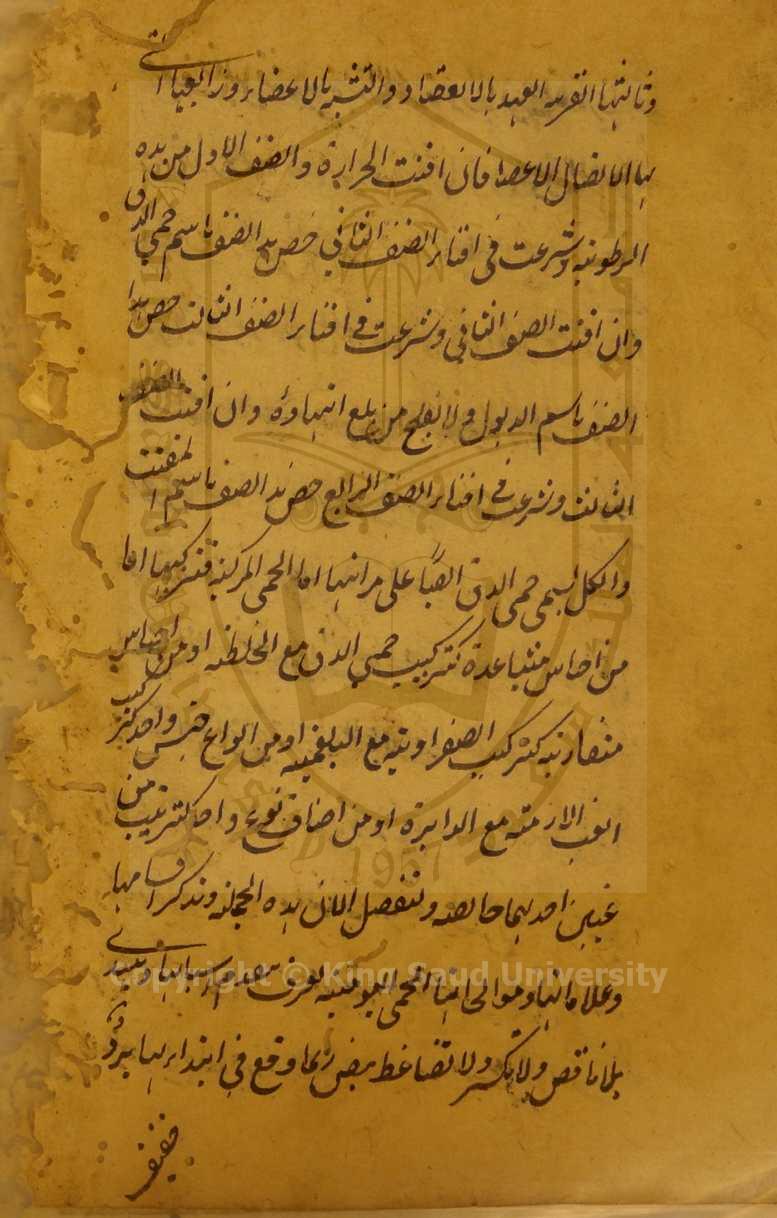 وثالثها القريبة العهد بالانعقاد والتشبه بالاعضاء ورابعها التي
بها اتصال الاعضا فان افنت الحرارة الصنف الاول من هذه
الرطوبة وشرعت في افناء الصنف الثاني خص هذا الصنف باسم حمي الدق
وان افنت الصنف الثاني وشرعت في افناء الصنف الثالث خص هذا
الصنف باسم الذبول ولا يفلح من بلغ انتهاؤه وان افنت الصنف
الثالث وشرعت في افناء الصنف الرابع خص هذا الصنف باسم المفتت
والكل يسمى حمى الدق ايضًا على مراتبها اما الحمى المركبة فتركيبها اما
من اجناس متباعدة كتركيب حمي الدق مع الخلطية او من اجناس
متقاربة كتركيب الصفراوية مع البلغمية او من انواع جنس واحد كتركيب
الغب اللازمة مع الدايرة او من اصناف نوع واحد كتركيب من
غبين احديهما خالصة ولنفصل الان هذه الجملة ونذكر اقسامها
وعلاماتها ومن الله الحمى اليومية تعرف
بلا نافض ولا تكسر ولا تضاغط نبض ربما وقع في ابتدائها برد
خفيف
Copyright © King Saud University
1957